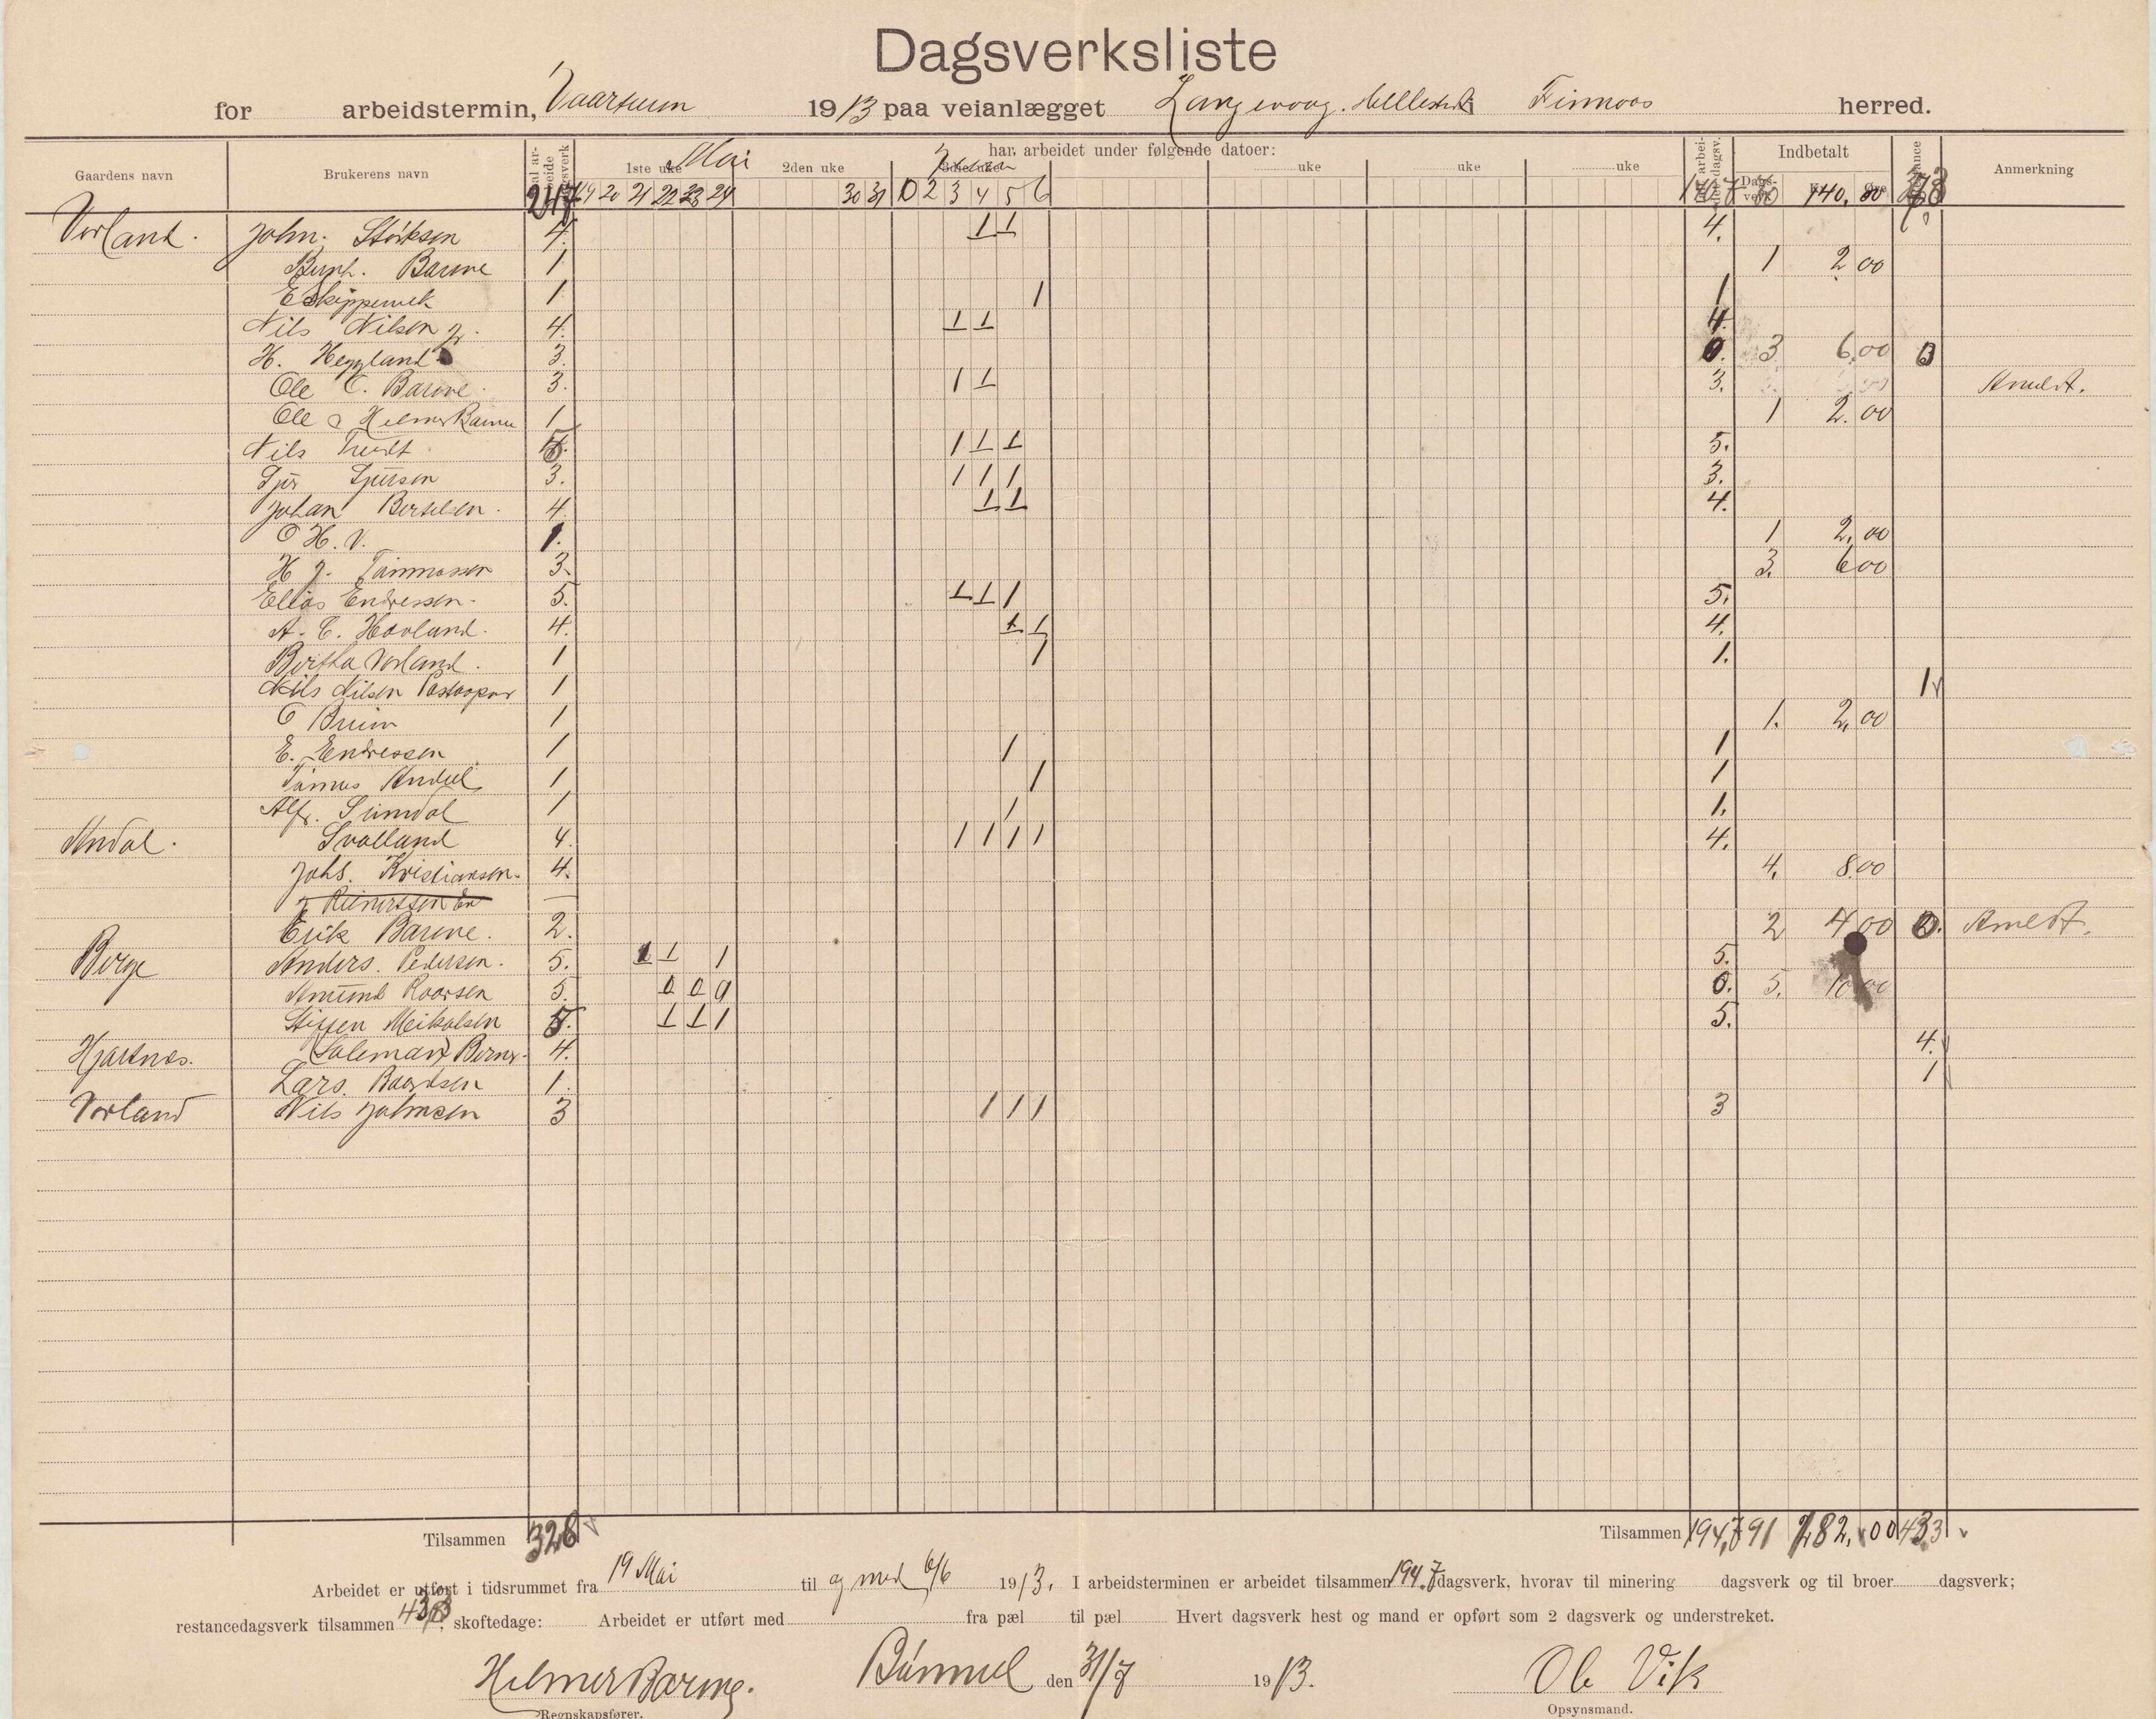 Dagsverksliste
for arbeidstermin, Vaartuun 1913 paa veianlægget Langevaag. Mellesdal i Finnaas herred.
Gaardens navn Brukerens navn har arbeidet under følgende datoer: Indbetalt Anmerkning
1ste uke Mai 2den uke 3die uke uke uke uke uke
247 19 20 21 22 23 24 30 31 0 2 3 4 5 6 140,80
Vorland. John. Störksen 4. 1 1 4.
Bernh. Barane 1 1 2 00
E Skippervik 1 1 1
Nils Nilsen jr. 4. 1 1 4.
H. Heggland 3. 0. 3 6,00 0
Ole C. Barane 3. 1 1 3. Anmelt.
Ole & Helmer Barane 1 1 2.00
Nils Tveit 5. 1 1 1 5.
Sjur Sjursen 3. 1 1 1 3.
Johan Bertelsen. 4. 1 1 4.
O H. V. 1. 1 2,00
H J. Tommassen 3. 3. 6 00
Elias Endressen. 5. 1 1 1 5.
A. C. Hovland. 4. 1 1 4.
Bertha Vorland. 1 1 1.
Nils Nilsen 1 1 v
O Bruun 1 1. 2,00
E. Endressen 1 1 1
Tomas Andal 1 1 1
Alfr. Sundal 1 1 1.
Andal. Svolland 4. 1 1 1 1 4.
Johs. Kristiansen. 4. 4. 8.00
Erik Barane. 2. 2 4 00 0. Anmeldt.
Berge Anders. Pedersen. 5. 1 1 1 5.
Amund Roarsen 5. 0 0 0 0. 5. 10 00
Steffen Meikalsen 5. 1 1 1 5.
Hjartnes. Saleman Bernt. 4. 4. v
Lars. Baardsen 1. 1 v
Vorland Nils Johnsen 3 1 1 1 3
Tilsammen 328 Tilsammen 194,7 91 182,00 43,3 v
Arbeidet er utført i tidsrummet fra 19 Mai til og med 6/6 1913. I arbeidsterminen er arbeidet tilsammen 194.7 dagsverk, hvorav til minering dagsverk og til broer dagsverk;
restancedagsverk tilsammen 43,3, skoftedage: Arbeidet er utført med fra pæl til pæl Hvert dagsverk hest og mand er opført som 2 dagsverk og understreket.
Helmer Barane. Bömmel den 31/7 1913. Ole Vik
Regnskapsfører. Opsynsmand.